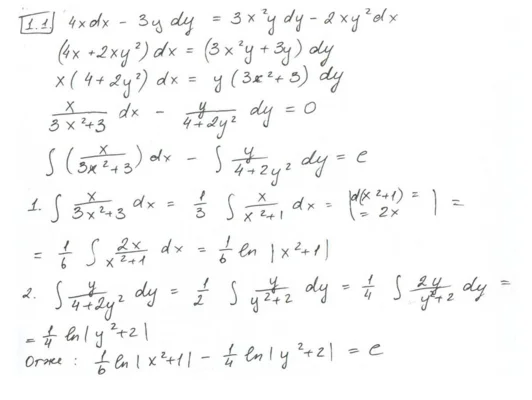 1.1 4xdx - 3y dy = 3x²y dy - 2xy²dx
(4x + 2xy²) dx = (3x²y + 3y) dy
x(4 + 2y²) dx = y(3x² + 3) dy
x/(3x²+3) dx - y/(4+2y²) dy = 0
∫(x/(3x²+3)) dx - ∫ y/(4+2y²) dy = c
1. ∫ x/(3x²+3) dx = 1/3 ∫ x/(x²+1) dx = |d(x²+1) = = 2x| =
= 1/6 ∫ 2x/(x²+1) dx = 1/6 ln |x²+1|
2. ∫ y/(4+2y²) dy = 1/2 ∫ y/(y²+2) dy = 1/4 ∫ 2y/(y²+2) dy =
= 1/4 ln|y²+2|
Отже: 1/6 ln|x²+1| - 1/4 ln|y²+2| = c